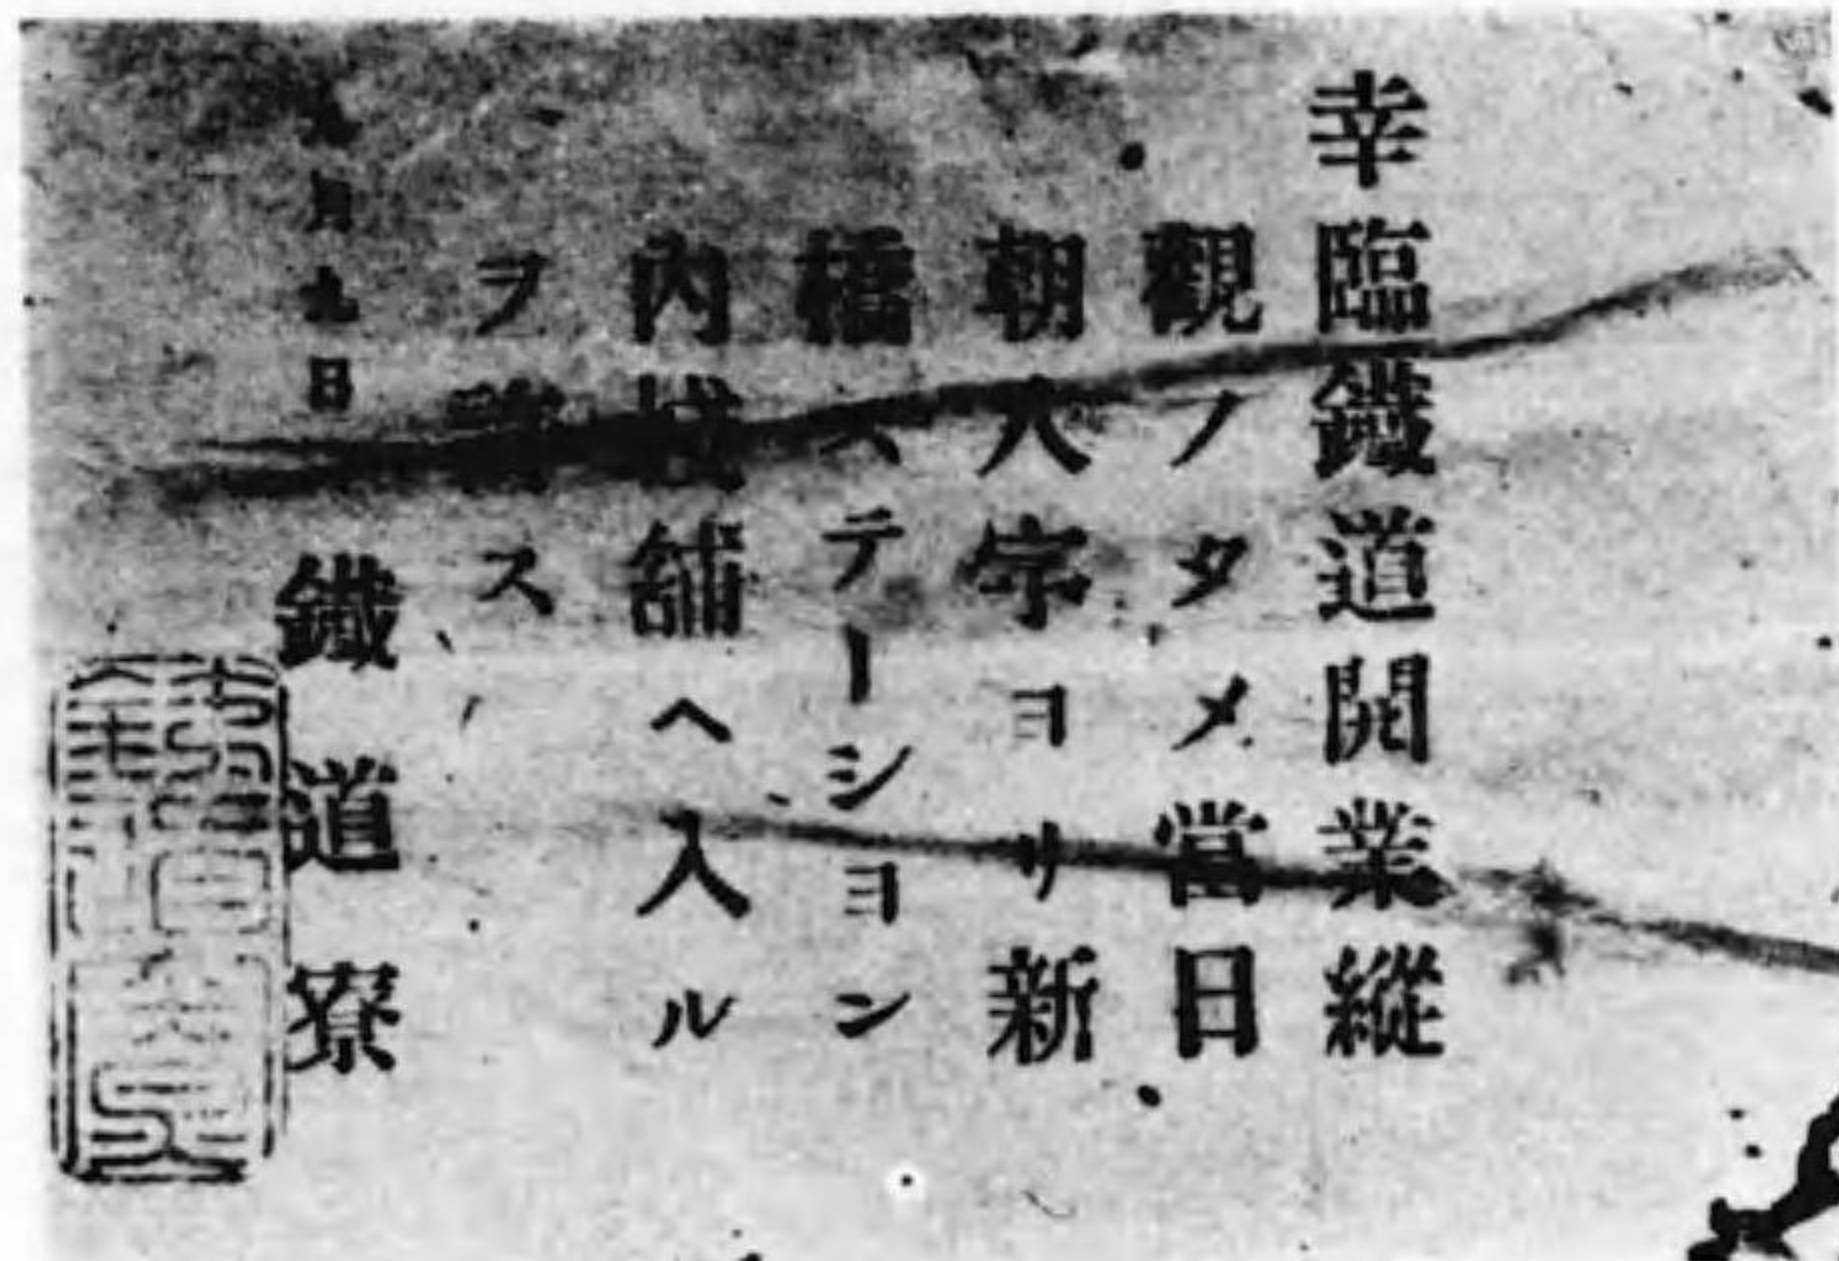 幸臨鐵道開業縱
觀ノタメ當日
朝八字ヨリ新
橋ステーション
内舗ヘ入ル
ヲス
九月九日
鐵道寮